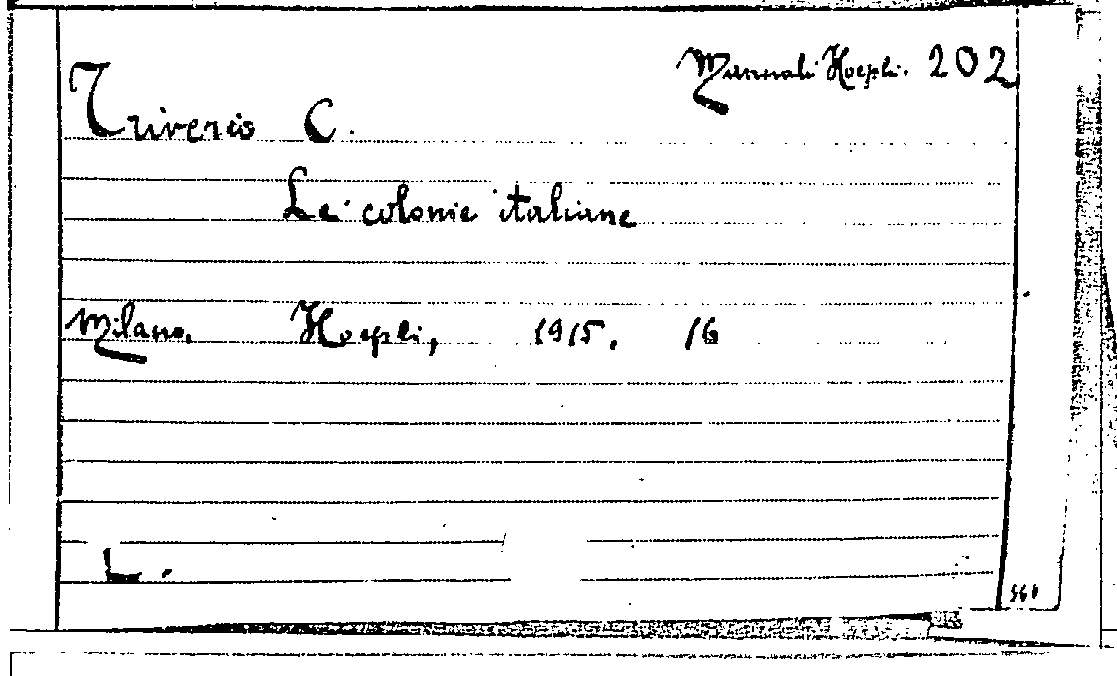 Manuali Hoepli. 202
Triverio C.
Le colonie italiane
Milano, Hoepli, 1915. 16
L.